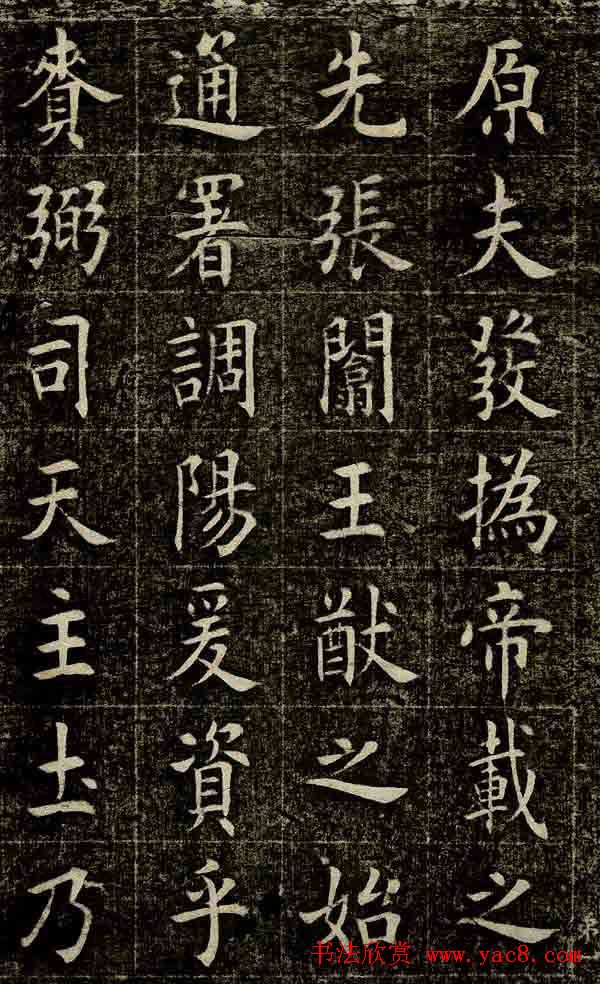 原夫發撝帝載之
先張闟王猷之始
通署調陽爰資乎
賚弼司天主圡乃
书法欣赏 www.yac8.com